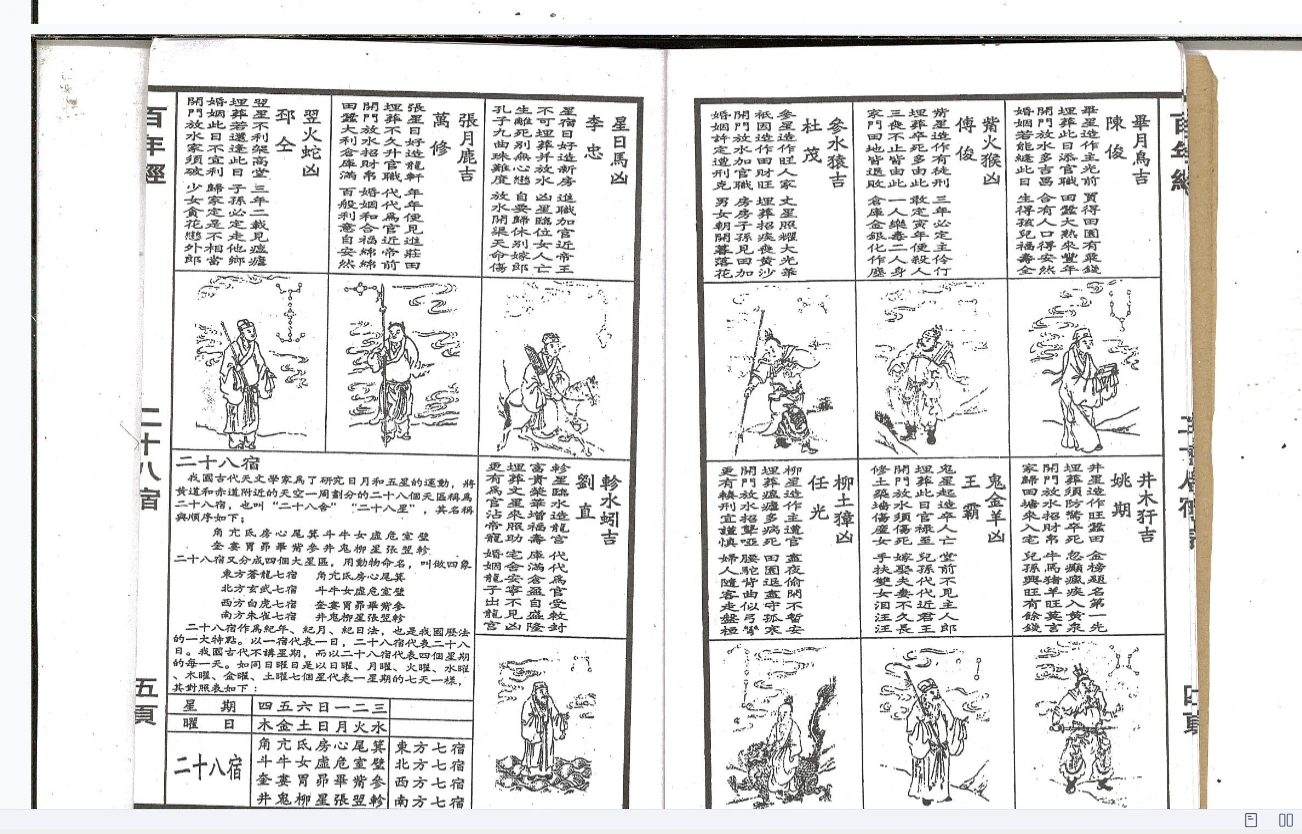 畢月烏吉
陳俊
畢星造作主光前 買得田園有粟錢
埋葬此日添官職 田蠶大熟永豐年
開門放水多吉昌 合有人口得安然
婚姻若能逢此日 生得孩兒福壽全
觜火猴凶
傅俊
觜星造作有徒刑 三年必定主伶仃
埋葬卒死多由此 取定寅年便殺人
三喪不止皆由此 一人藥毒二人身
家門田地皆退敗 倉庫金銀化作塵
參水猿吉
杜茂
參星造作旺人家 文星照耀大光華
祇因造作田財旺 埋葬招疾喪黃沙
開門放水加官職 房房子孫見田加
婚姻許定遭刑克 男女朝開暮落花
井木犴吉
姚期
井星造作旺蠶田 金榜題名第一先
埋葬須防驚卒死 忽癲瘋疾入黃泉
開門放水招財帛 牛馬豬羊旺莫言
家歸田塘來入宅 兒孫興旺有餘錢
鬼金羊凶
王霸
鬼星起造卒人亡 堂前不見主人郎
埋葬此日官祿至 兒孫代代近君王
開門放水須傷死 嫁娶夫妻不久長
修土築墻傷產女 手扶雙女淚汪汪
柳土獐凶
任光
柳星造作主遭官 晝夜偷閉不暫安
埋葬瘟㾮多病死 田園退盡守孤寒
開門放水招聾啞 腰駝背曲似弓彎
更有棒刑宜謹慎 婦人隨客走盤桓
四頁
星日馬凶
李忠
星宿日好造新房 進職加官近帝王
不可埋葬并放水 凶星臨位女人亡
生離死別無心戀 自要歸休別嫁郎
孔子九曲珠難度 放水開渠天命傷
張月鹿吉
萬修
張星日好造龍軒 年年便見進莊田
埋葬不久升官職 代代為官近帝前
開門放水招財帛 婚姻和合福綿綿
田蠶大利倉庫滿 百般利意自安然
翌火蛇凶
邳仝
翌星不利架高堂 三年二載見瘟㾮
埋葬若還逢此日 子孫必定走他鄉
婚姻此日不宜利 歸家定是不相當
開門放水家須破 少女貪花戀外郎
軫水蚓吉
劉直
軫星臨水造龍宮 代代為官受敕封
富貴榮華增福壽 庫滿倉盈自盛隆
埋葬文星來照助 宅舍安寧不見凶
更有為官沾帝寵 婚姻龍子出龍宮
二十八宿
我國古代天文學家為了研究日月和五星的運動，將
黃道和赤道附近的天空一周劃分的二十八個天區稱為
二十八宿，也叫“二十八舍”“二十八星”，其名稱
與順序如下；
角亢氐房心尾箕斗牛女虛危室壁
奎婁胃昴畢觜參井鬼柳星張翌軫
二十八宿又分成四個大星區，用動物命名，叫做四象
東方蒼龍七宿 角亢氐房心尾箕
北方玄武七宿 斗牛女虛危室壁
西方白虎七宿 奎婁胃昴畢觜參
南方朱雀七宿 井鬼柳星張翌軫
二十八宿作為紀年、紀月、紀日法，也是我國曆法
的一大特點。以一宿代表一日，二十八宿代表二十八
日。我國古代不講星期，而以二十八宿代表四個星期
的每一天。如同日曜日是以日曜、月曜、火曜、水曜
、木曜、金曜、土曜七個星代表一星期的七天一樣，
其對照表如下：
星期 四五六日一二三
曜日 木金土日月火水
二十八宿
角亢氐房心尾箕 東方七宿
斗牛女虛危室壁 北方七宿
奎婁胃昴畢觜參 西方七宿
井鬼柳星張翌軫 南方七宿
百年經
二十八宿
五頁